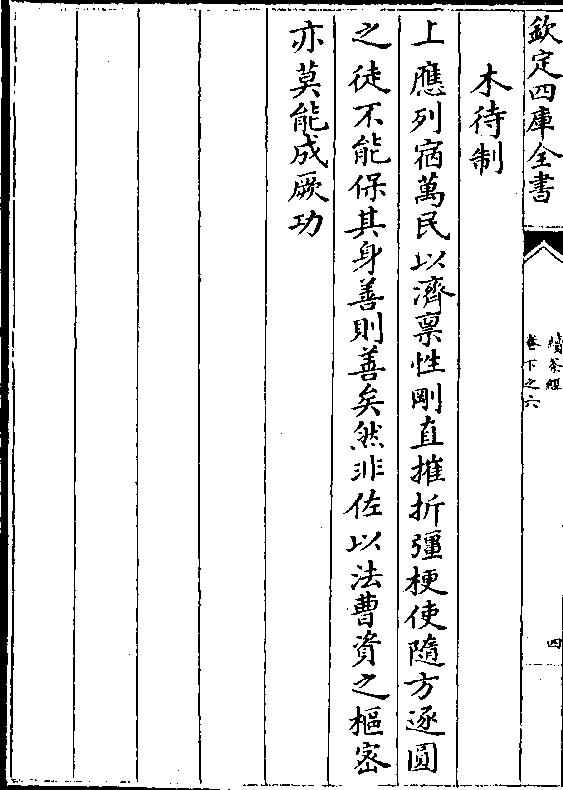 欽定四庫全書
續茶經
卷下之六
四
木待制
上應列宿萬民以濟稟性剛直摧折彊梗使隨方逐圓
之徒不能保其身善則善矣然非佐以法曹資之樞密
亦莫能成厥功